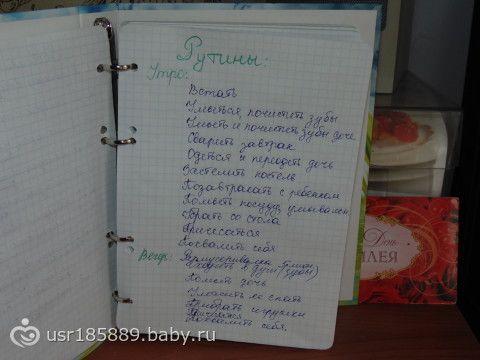 Рутины:
Утро:
Встать
Умыться, почистить зубы
Умыть и почистить зубы доче
Сварить завтрак
Одеться и переодеть дочь
Застелить постель
Позавтракать с ребенком
Помыть посуду,
Убрать со стола
Причесаться
Похвалить себя
Вечер:
Сходить в душ (зубы)
Помыть дочь
Уложить ее спать
Прибрать игрушки
Похвалить себя.
День
ЛЕЯ
usr185889.baby.ru